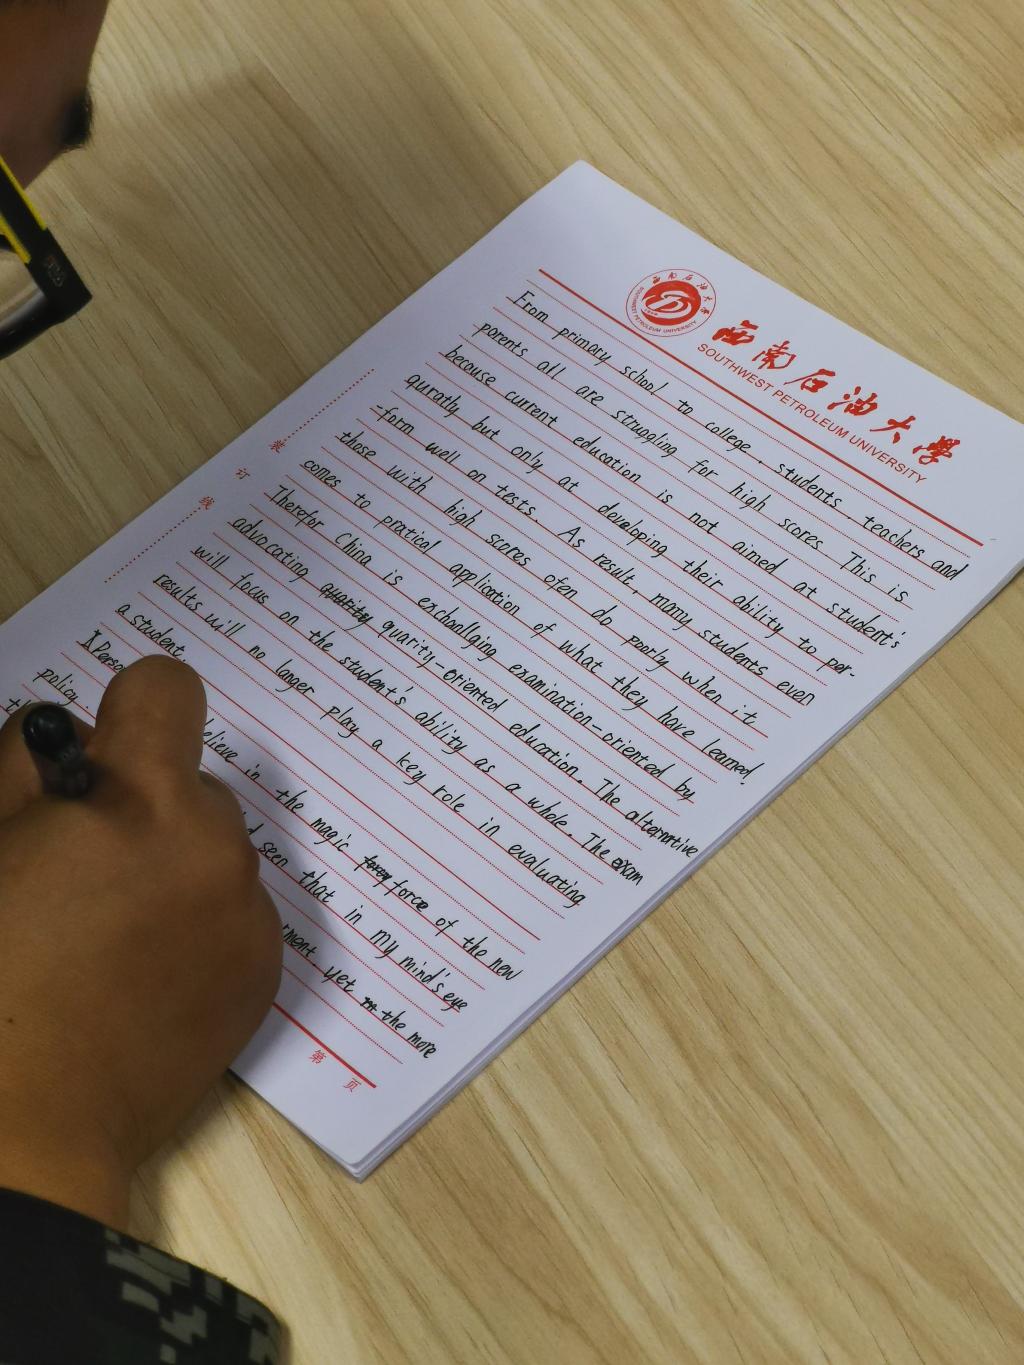 西南石油大學
SOUTHWEST PETROLEUM UNIVERSITY
西南石油大学
SOUTHWEST PETROLEUM UNIVERSITY
From primary school to college, students, teachers and
parents all are struggling for high scores This is
because current education is not aimed at student's
quratly but only at developing their ability to per-
-form well on tests. As result, many students even
those with high scores ofen do poorly when it
comes to pratical application of what they have learned.
Therefor China is exchanllging examination-oriented by
advocating quarity-oriented education. The alternative
will focus on the student's ability as a whole. The exam
results will no longer play a key role in evaluating
a student.
elieve in the magic force of the new
policy.
d seen that in my mind's eye
rment yet the more
装
订
线
第 页